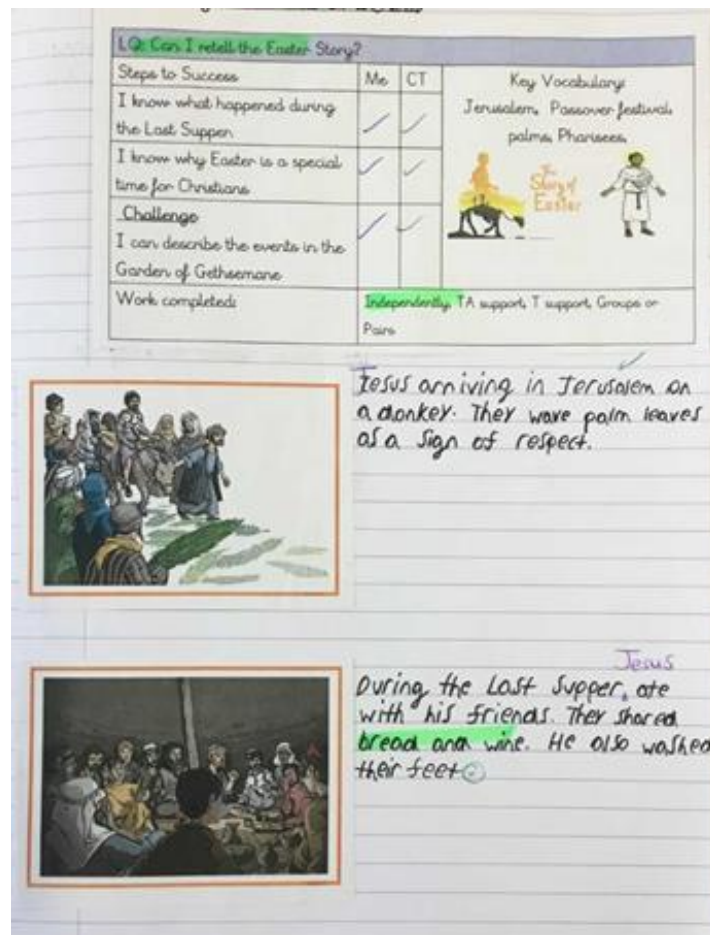 LQ: Can I retell the Easter Story?
Steps to Success
Me
CT
Key Vocabulary:
Jerusalem, Passover festival,
palms, Pharisees,
I know what happened during
the Last Supper.
I know why Easter is a special
time for Christians
The
Story of
Easter
Challenge
I can describe the events in the
Garden of Gethsemane
Work completed:
Independently, TA support, T support, Groups or
Pairs
Jesus arriving in Jerusalem on
a donkey. They wave palm leaves
as a sign of respect.
Jesus
During the Last Supper, ate
with his friends. They shared
bread and wine. He also washed
their feet.